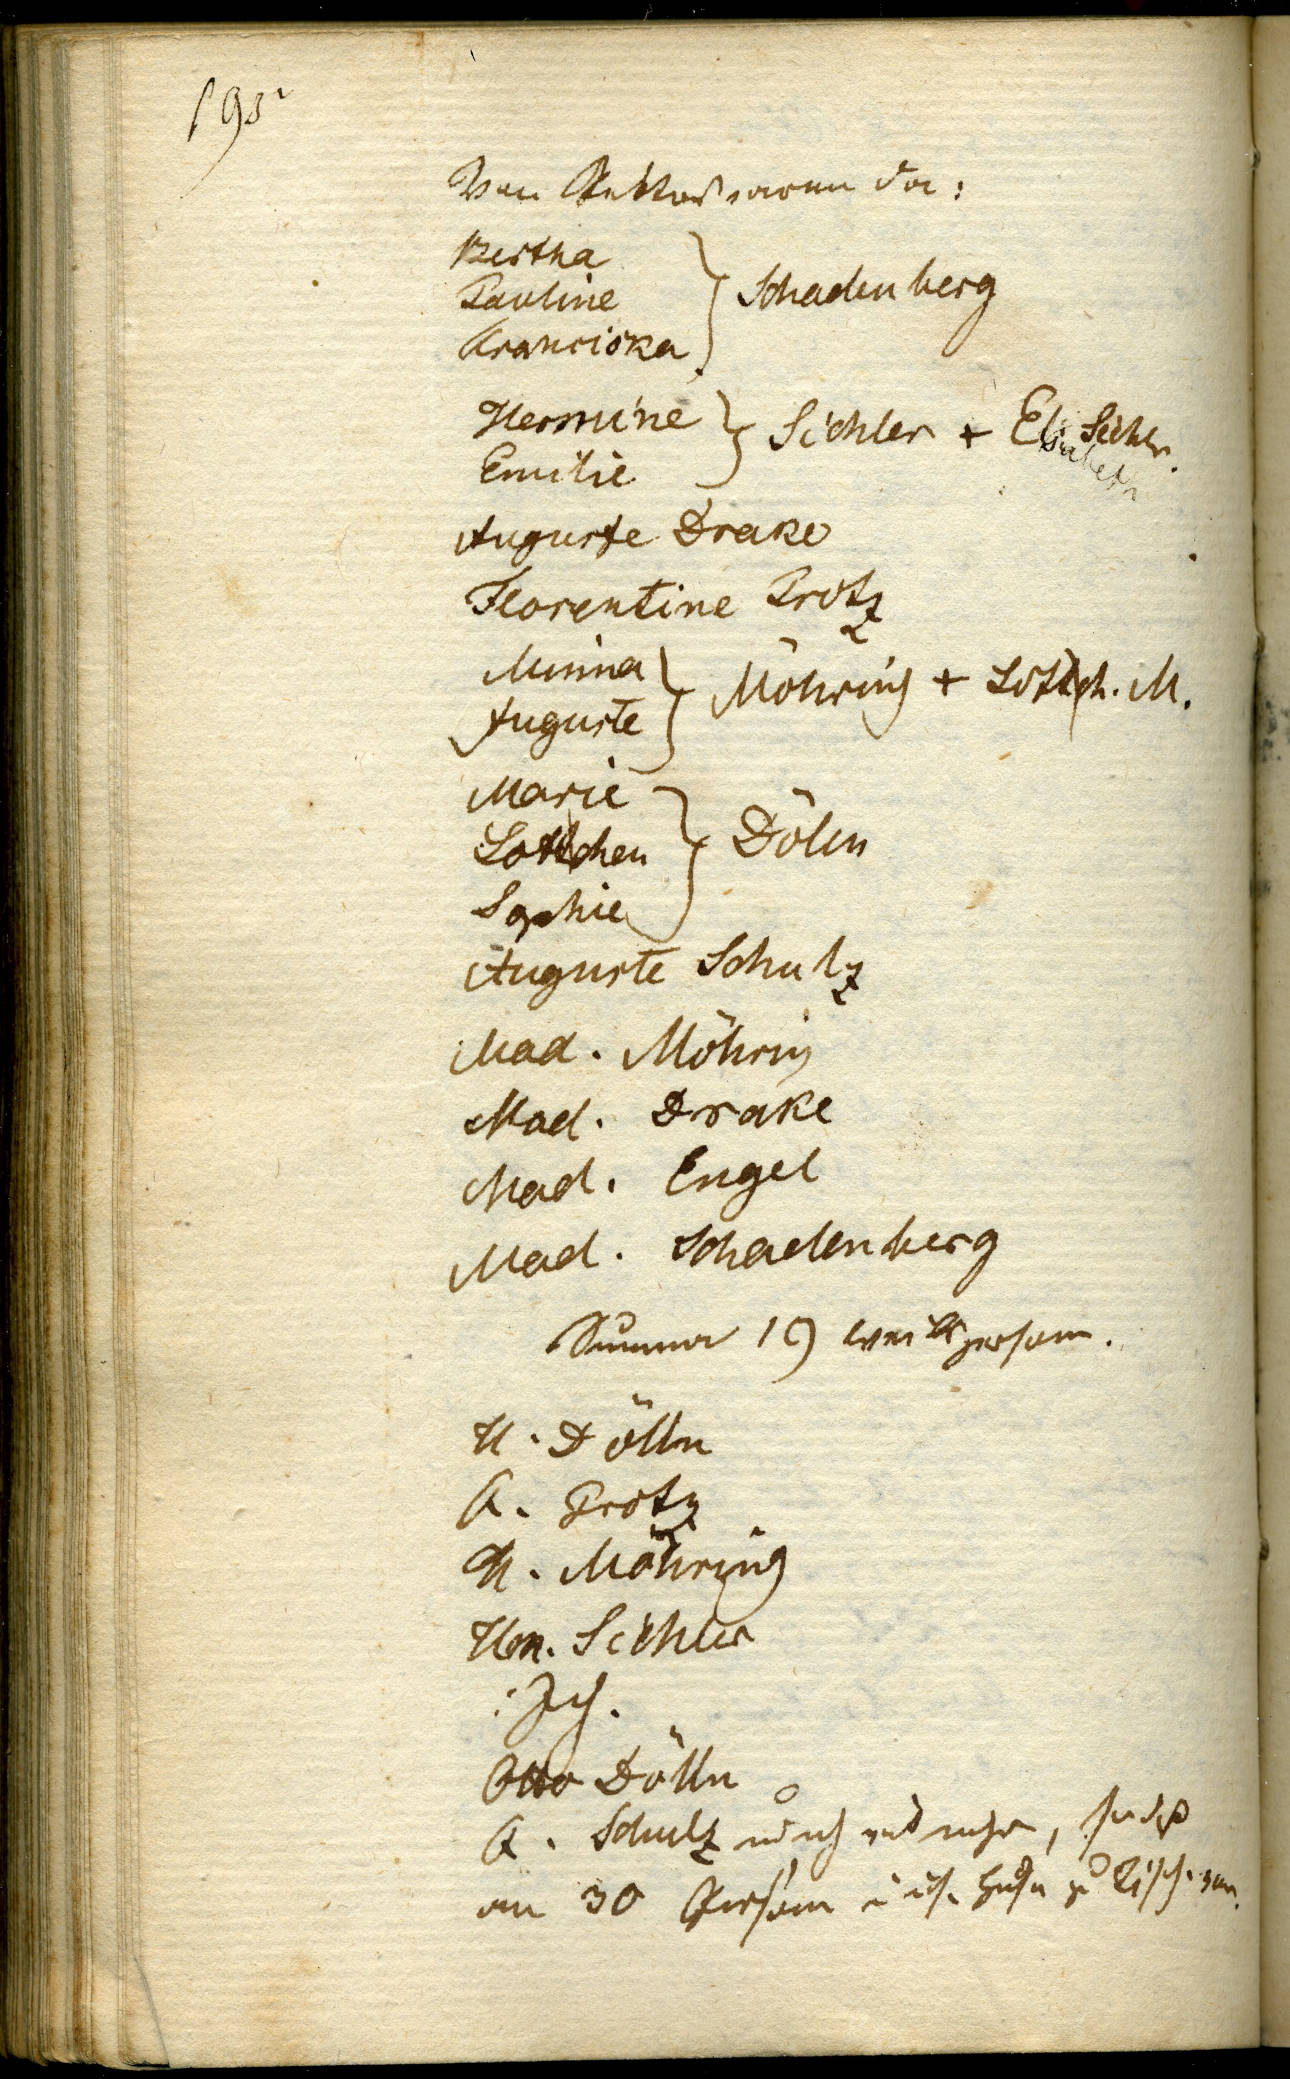 193
Von Gästen waren da:
Bertha
Pauline } Schadenberg
Franciska
Hermine } Sichler + Elisabeth Sichler.
Emilie
Auguste Drake
Florentine Protz
Minna } Möhring + Lottch. M.
Auguste
Marie
Lottchen } Dölln
Sophie
Auguste Schulz
Mad. Möhring
Mad. Drake
Mad. Engel
Mad. Schadenberg
Summa 19 weibl. Personen.
H. Dölln
A. Protz
H. Möhring
Hm. Sichler
Ich.
Otto Dölln
A. Schulz und noch mehre, so daß
an 30 Personen zu Tisch